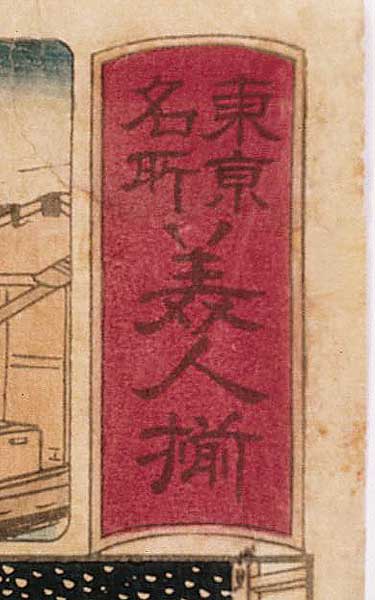 東京
名所
美人揃